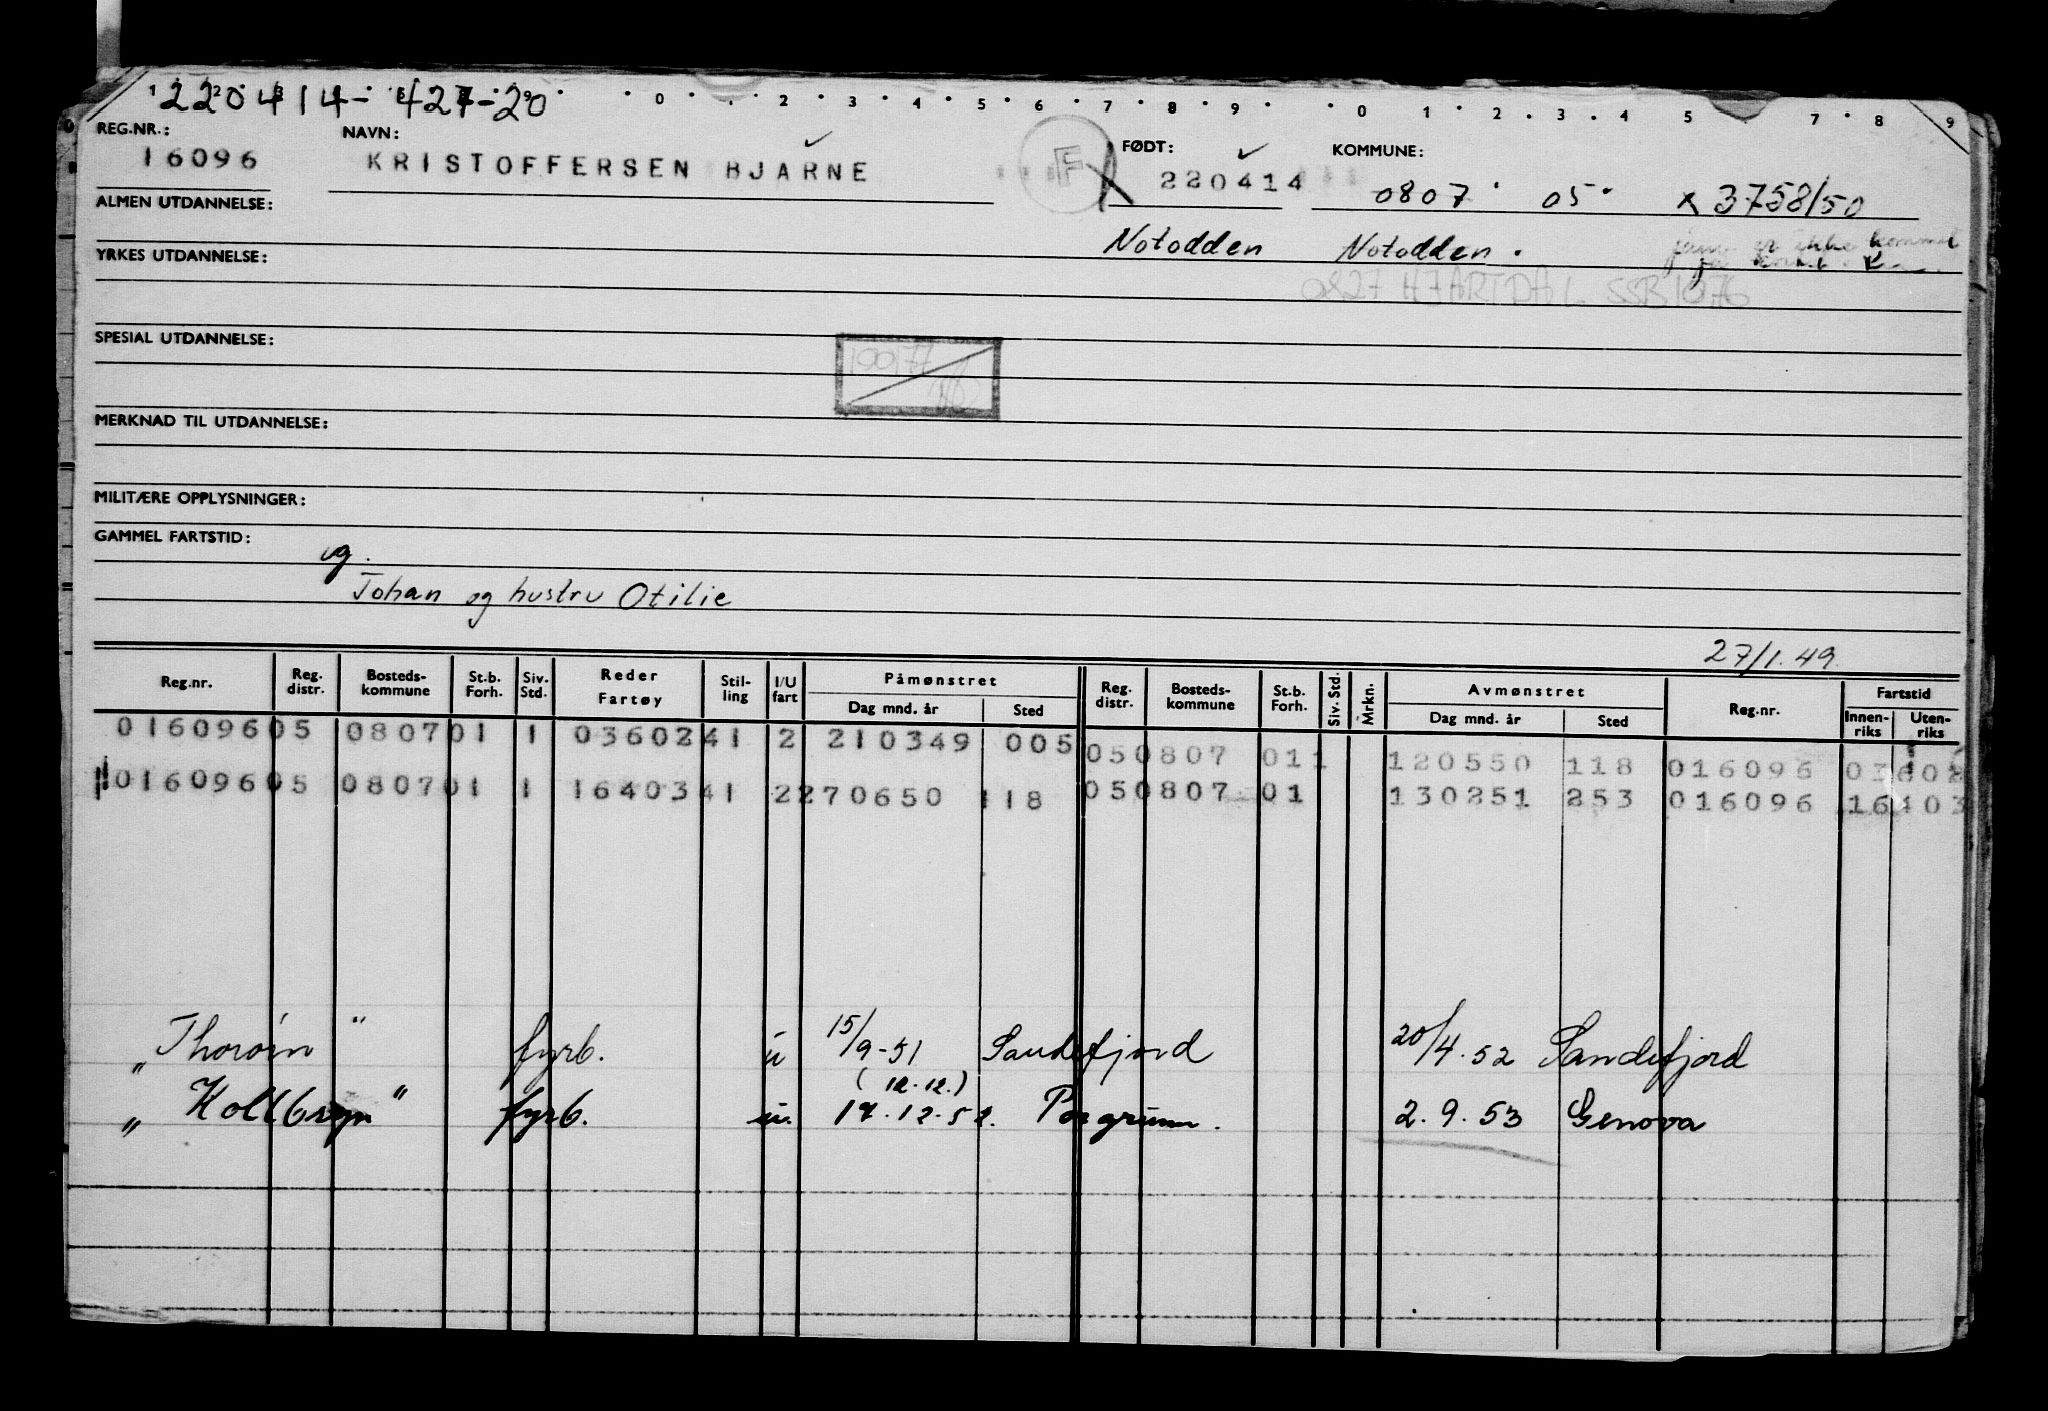 220414-427-20
0 1 2 3 4 5 6 7 8 9 0 1 2 3 4 5 7 8 9
REG.NR.: NAVN: FØDT: KOMMUNE:
16096 KRISTOFFERSEN BJARNE F 220414 0807 05 x 3758/50
ALMEN UTDANNELSE:
Notodden Notodden. er ikke kommet
YRKES UTDANNELSE:
0827 HJARTDAL SSB 1076
SPESIAL UTDANNELSE:
MERKNAD TIL UTDANNELSE:
MILITÆRE OPPLYSNINGER:
GAMMEL FARTSTID:
ug.
Johan og hustru Otilie
27/1.49
Reg.nr. Reg. distr. Bosteds-kommune St.b. Forh. Siv. Std. Reder Fartøy Stil-ling I/U fart Påmønstret Dag mnd. år Sted Reg. distr. Bosteds-kommune St.b. Forh. Siv. Std. Mrkn. Avmønstret Dag mnd. år Sted Reg.nr. Fartstid Innen-riks Uten-riks
016096 05 0807 01 1 03602 41 2 210349 005 05 0807 01 1 120550 118 016096 03602
016096 05 0807 01 1 16403 41 2 270650 118 05 0807 01 130251 253 016096 16403
„Thorøin" fyrb. u 15/9-51 Sandefjord 20/4.52 Sandefjord
(12.12.)
„Kollbryn" fyrb. u. 17.12.52. Porsgrunn. 2.9.53 Genova